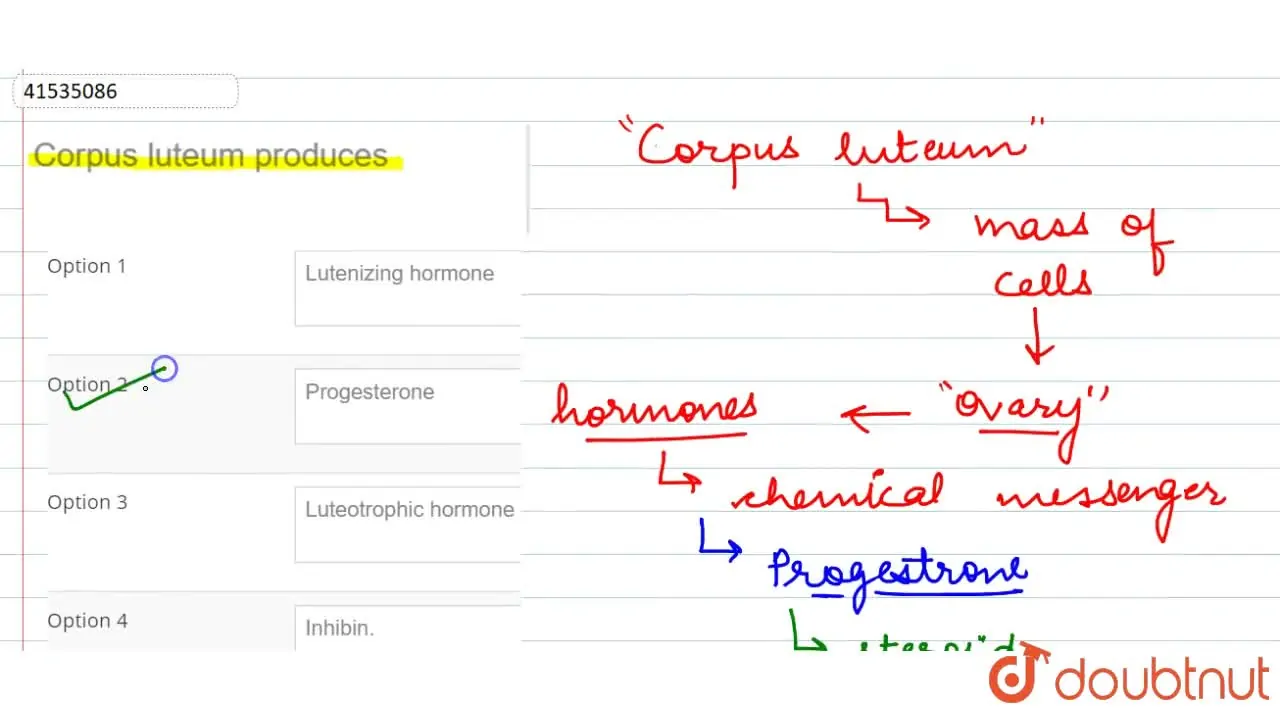 41535086
Corpus luteum produces
Option 1
Lutenizing hormone
Option 2
Progesterone
Option 3
Luteotrophic hormone
Option 4
Inhibin.
"Corpus luteum"
mass of
cells
"ovary"
hormones
chemical messenger
Progestrone
steroid
doubtnut